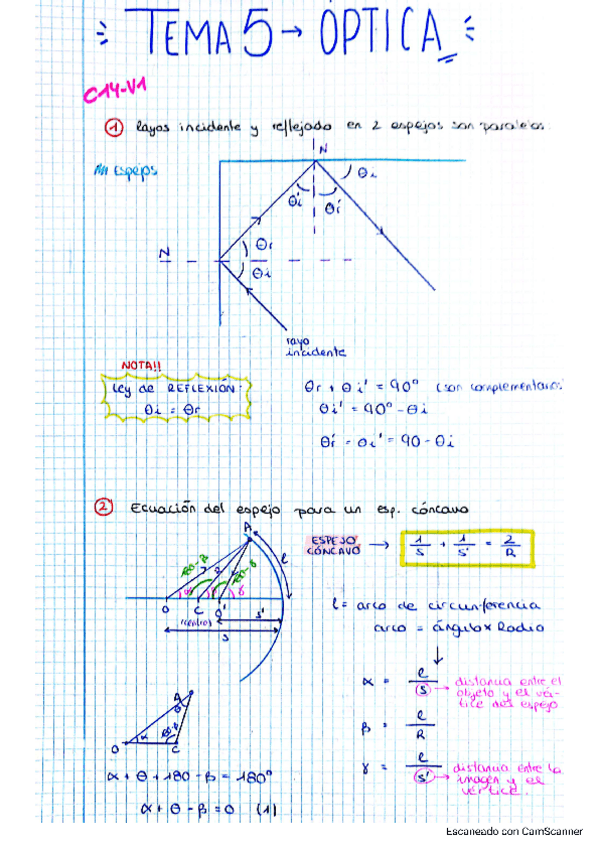 TEMA 5 → ÓPTICA
C14-V1
① Rayos incidente y reflejado en 2 espejos son paralelos
Espejos
N
θi
θi'
θr'
N
θr
θi
rayo
incidente
NOTA!!
Ley de REFLEXIÓN:
θi = θr
θr + θi' = 90º (son complementarios
θi' = 90º - θi
θr' = θi' = 90 - θi
② Ecuación del espejo para un esp. cóncavo
ESPEJO
CÓNCAVO → 1/S + 1/S' = 2/R
A
l
180-β
θ
180-γ
α
β
γ
O
C
O'
(centro)
S'
S
l = arco de circunferencia
arco = ángulo x Radio
α = l/S → distancia entre el
objeto y el vér-
tice del espejo
β = l/R
γ = l/S' → distancia entre la
imagen y el
vértice.
A
θ
α
180-β
O
C
α + θ + 180 - β = 180º
α + θ - β = 0 (1)
Escaneado con CamScanner